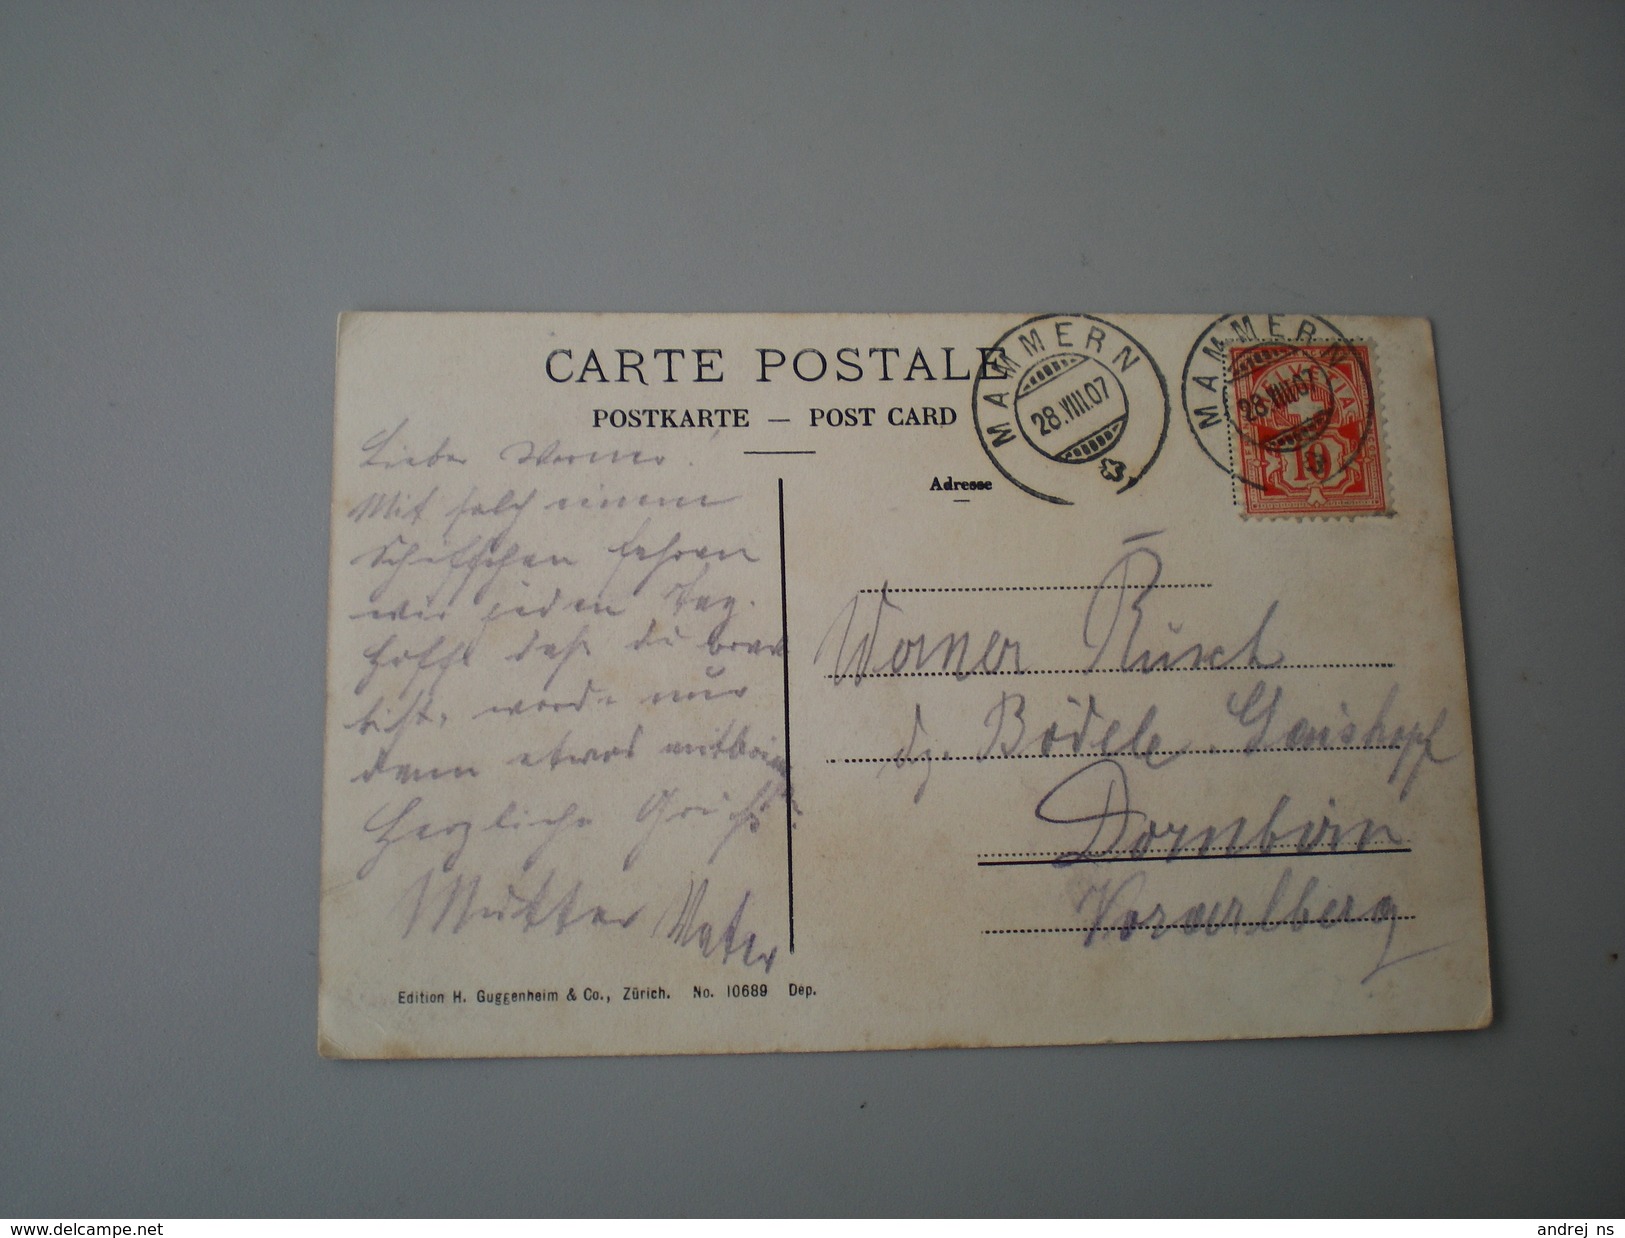 CARTE POSTALE
POSTKARTE — POST CARD
Adresse
MAMMERN
28.VIII.07
MAMMERN
28.VIII.07
10
Lieber Werner!
Mit solch einem
Schiffchen fahren
wir jeden Tag.
Hoffe daß du brav
bist, werde nur
dann etwas mitbringen
Herzliche Grüße
Mutter Vater
Werner Rüsch
dz. Bödele. Gaiskopf
Dornbirn
Vorarlberg
Edition H. Guggenheim & Co., Zürich. No. 10689 Dep.
www.delcampe.net
andrej ns